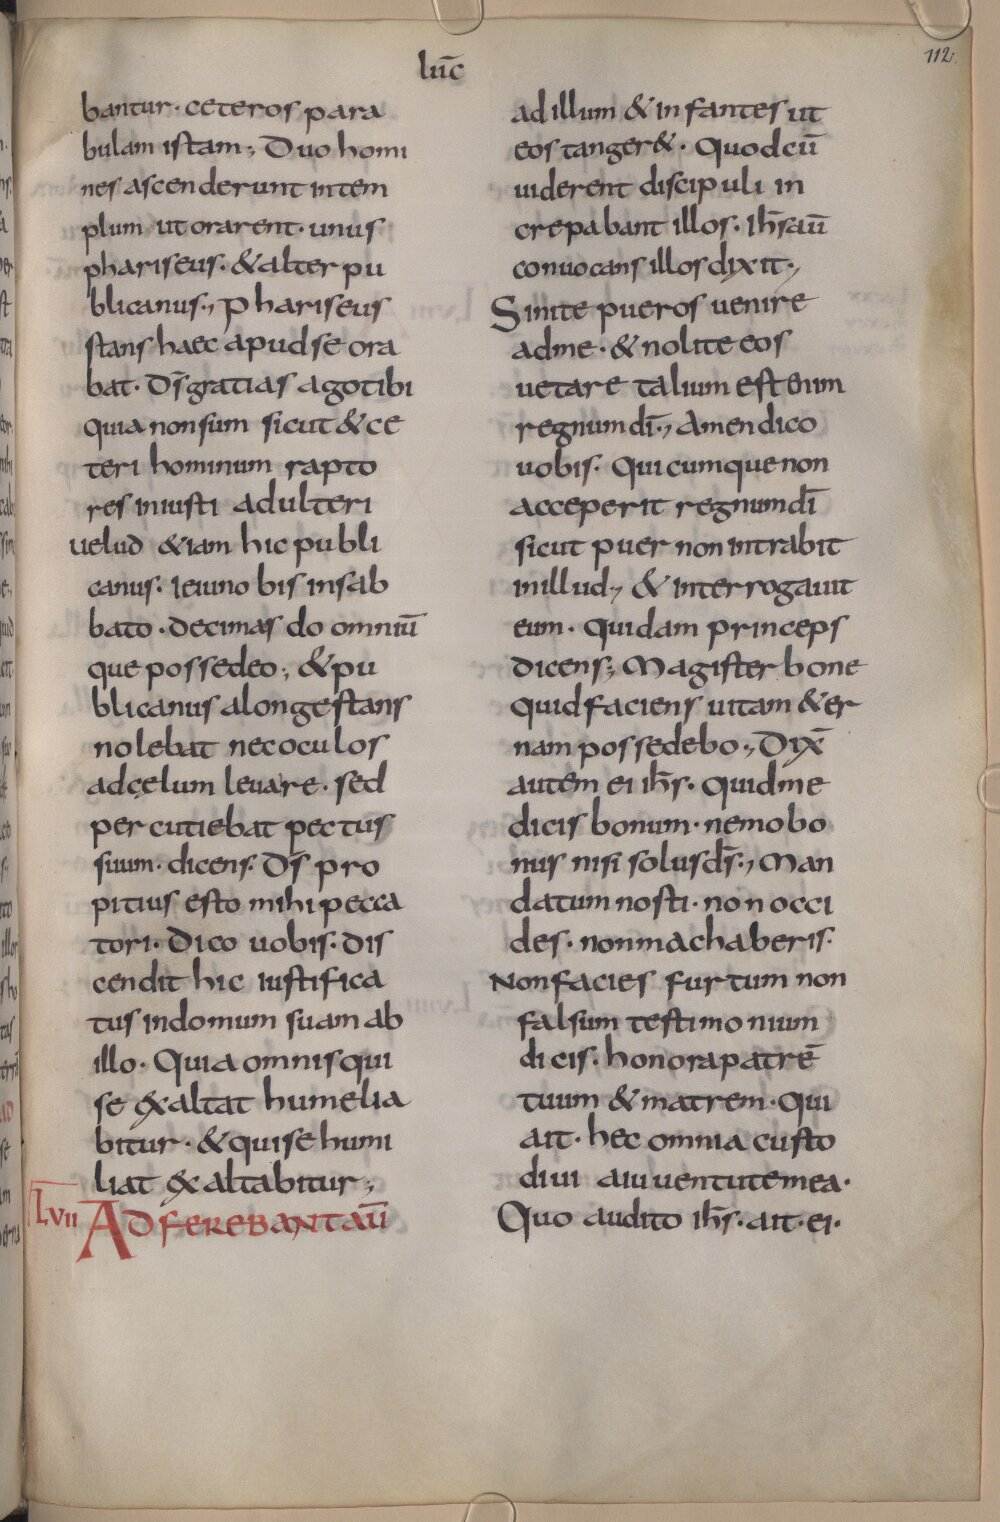 lūc
112.
bantur· ceteros para
bulam istam; Duo homi
nes ascenderunt intem
plum ut orarent· unus
phariseus· & alter pu
blicanus·, Phariseus
stans haec apud se ora
bat· D̄s gratias ago tibi
quia non sum sicut & ce
teri hominum rapto
res iniusti adulteri
uelud &iam hic publi
canus· Ieiuno bis in sab
bato· decimas do omniū
que possedeo; & pu
blicanus a longe stans
nolebat nec oculos
ad cęlum leuare· sed
percutiebat pectus
suum· dicens· D̄s pro
pitius esto mihi pecca
tori· Dico uobis· dis
cendit hic iustifica
tus in domum suam ab
illo· Quia omnis qui
se exaltat humelia
bitur· & qui se humi
liat exaltabitur,
Lvii ADFEREBANT AŪ
ad illum & infantes ut
eos tanger&· Quod cū
uiderent discipuli in
crepabant illos· Ih̄s aū
conuocans illos dixit·,
Sinite pueros uenire
ad me· & nolite eos
uetare talium est enim
regnum dī·, Amen dico
uobis· Quicumque non
acceperit regnum dī
sicut puer non intrabit
in illud·, & interrogauit
eum· quidam princeps
dicens; Magister bone
quid faciens uitam &er
nam possedebo·, Dix̄
autem ei ih̄s· Quid me
dicis bonum· nemo bo
nus nisi solus d̄s·, Man
datum nosti· non occi
des· non machaberis·
Non facies furtum non
falsum testimonium
dicis· honora patrē
tuum & matrem· Qui
ait· hec omnia custo
diui a iuuentute mea·
Quo audito ih̄s· ait· ei·